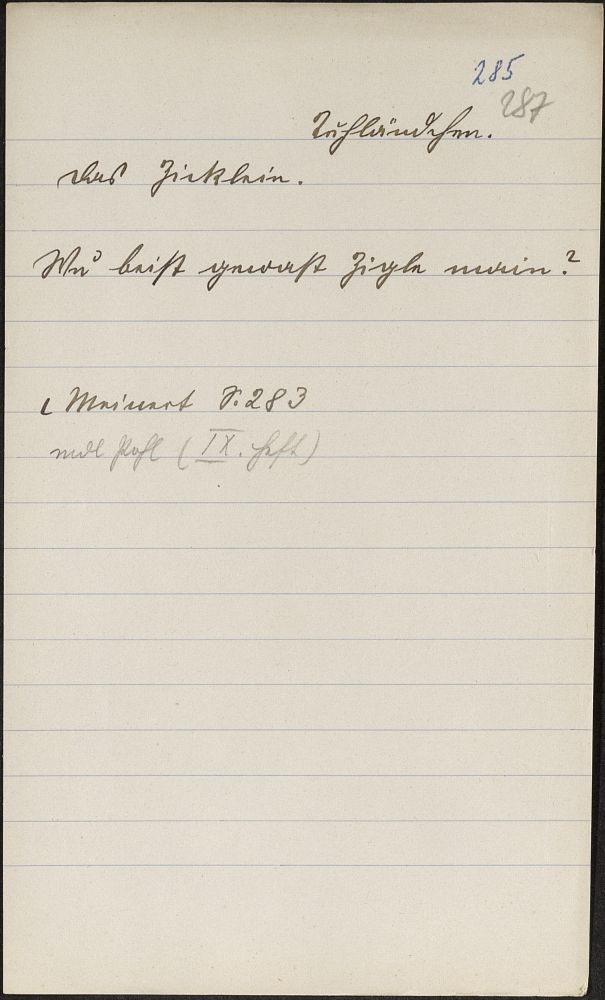 285
287
Kuhländchen.
Das Zicklein.
Wu beist gewast Zigle main?
Meinert S. 283
mdl Pohl (IX. Heft)